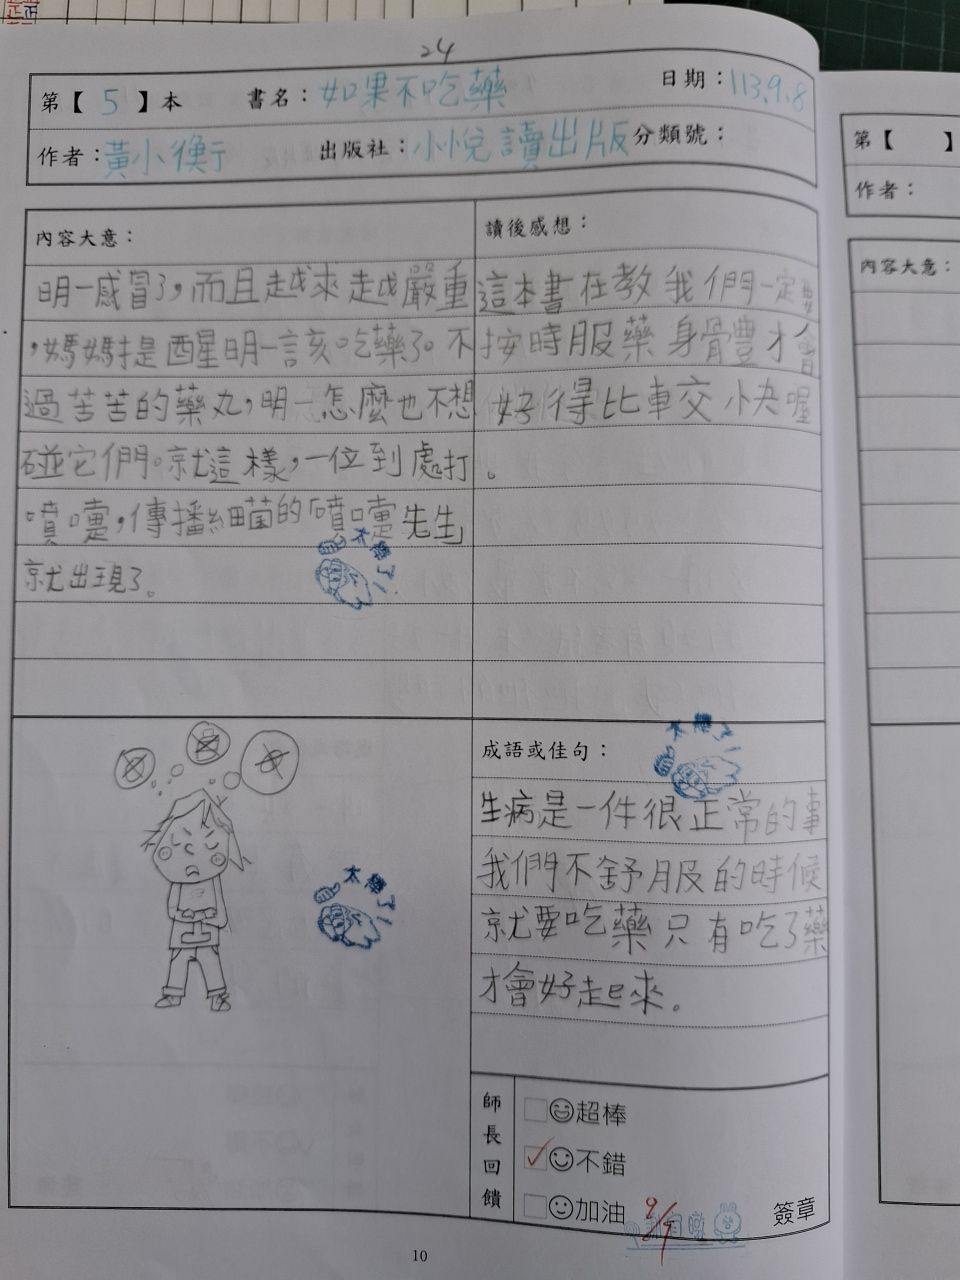 24
第【 5 】本 書名：如果不吃藥 日期：113.9.8
作者：黃小衡 出版社：小悅讀出版 分類號：
內容大意：
明一感冒了，而且越來越嚴重
，媽媽提醒明一該吃藥了。不
過苦苦的藥丸，明一怎麼也不想
碰它們。就這樣，一位到處打
噴嚏，傳播細菌的噴嚏先生
就出現了。
太棒了！
讀後感想：
這本書在教我們一定要
按時服藥身體才會
好得比較快喔
。
太棒了！
成語或佳句：
太棒了！
生病是一件很正常的事
我們不舒服的時候
就要吃藥只有吃了藥
才會好起來。
師長回饋
超棒
✓不錯
加油
9/
簽章
10
第【 】
作者：
內容大意：